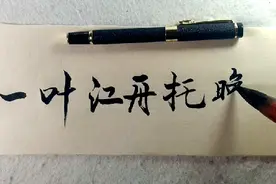 一叶江舟托晚